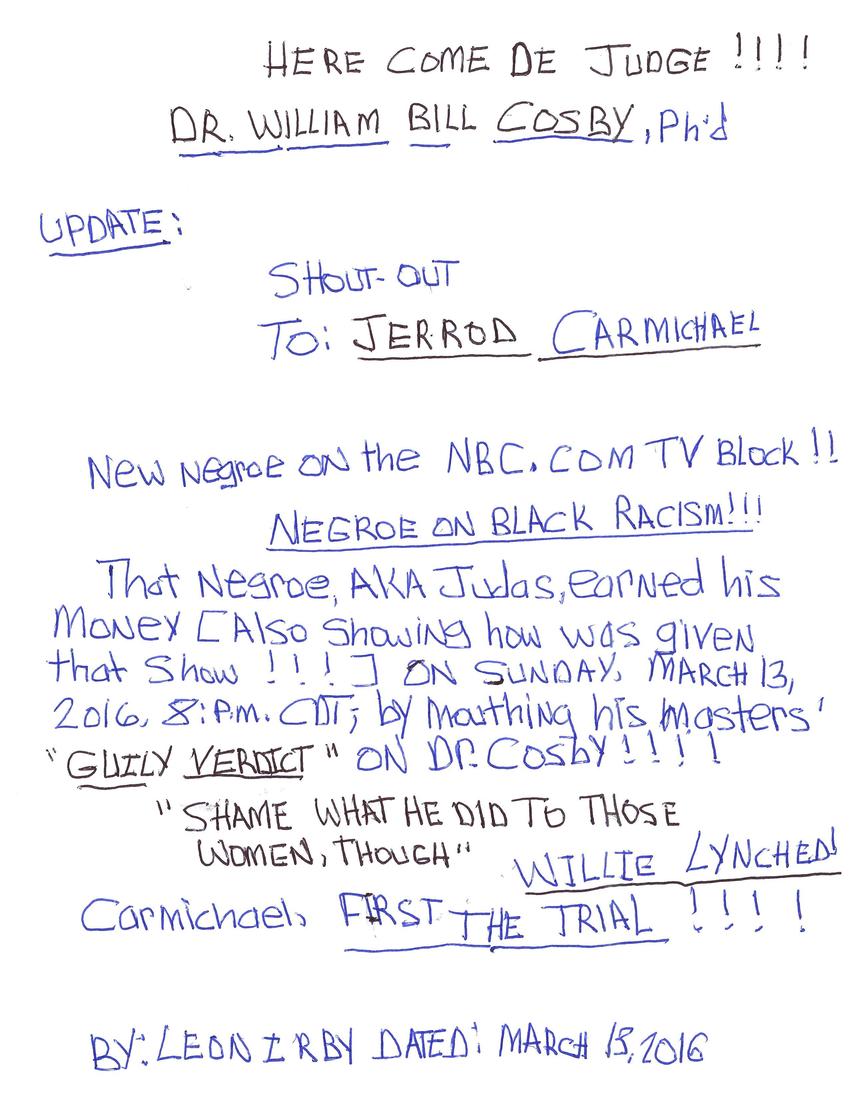 HERE COME DE JUDGE !!!!
DR. WILLIAM BILL COSBY, Ph'd
UPDATE:
SHOUT-OUT
TO: JERROD CARMICHAEL
New Negroe ON the NBC.COM TV Block !!
NEGROE ON BLACK RACISM!!!
That Negroe, AKA Judas, earned his
Money [Also showing how was given
that show !!!] ON SUNDAY, MARCH 13,
2016, 8:P.m. CDT; by mouthing his masters'
"GUILY VERDICT" ON DR. Cosby !!!!
"SHAME WHAT HE DID TO THOSE
WOMEN, THOUGH"
WILLIE LYNCHED!
Carmichael, FIRST THE TRIAL !!!!
BY: LEON IRBY DATED: MARCH 13, 2016